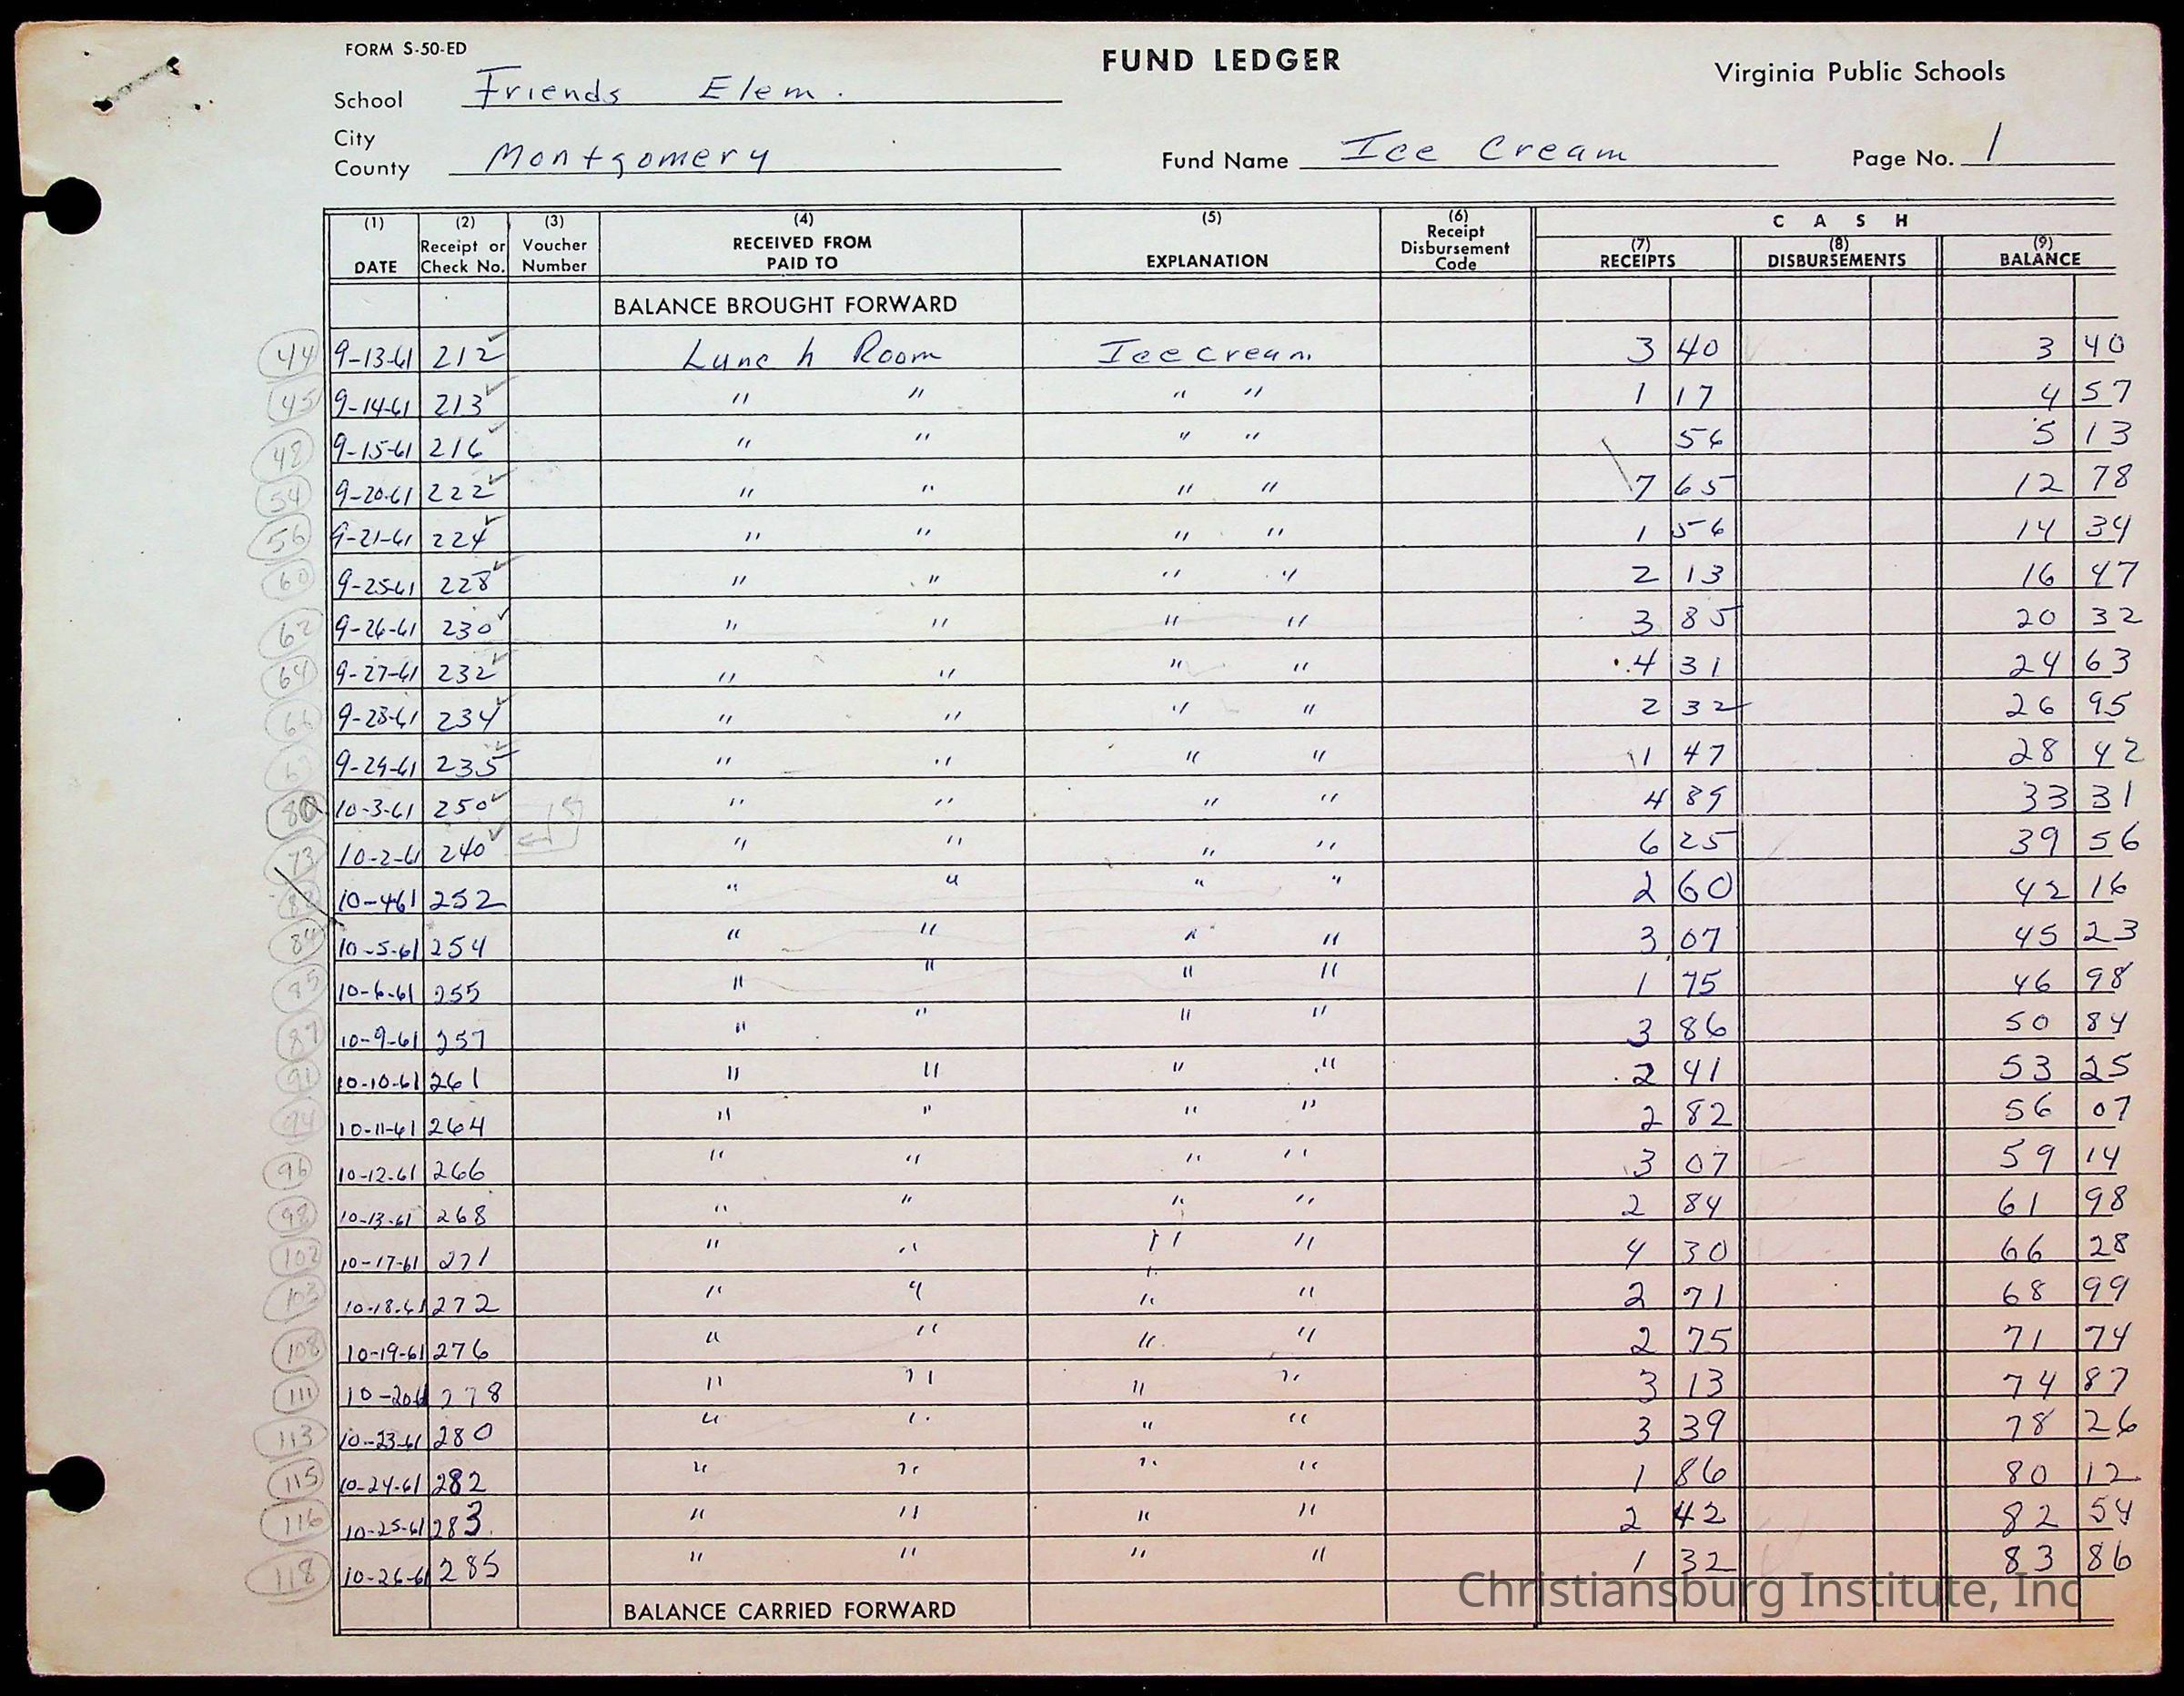 FORM S-50-ED
FUND LEDGER
Virginia Public Schools
School Friends Elem.
City
County Montgomery
Fund Name Ice Cream
Page No. 1
(1) DATE (2) Receipt or Check No. (3) Voucher Number (4) RECEIVED FROM PAID TO (5) EXPLANATION (6) Receipt Disbursement Code CASH (7) RECEIPTS (8) DISBURSEMENTS (9) BALANCE
BALANCE BROUGHT FORWARD
44 9-13-61 212 Lunch Room Ice cream 3 40 3 40
45 9-14-61 213 " " " " 1 17 4 57
48 9-15-61 216 " " " " 56 5 13
54 9-20-61 222 " " " " 7 65 12 78
56 9-21-61 224 " " " " 1 56 14 34
60 9-25-61 228 " " " " 2 13 16 47
62 9-26-61 230 " " " " 3 85 20 32
64 9-27-61 232 " " " " 4 31 24 63
66 9-28-61 234 " " " " 2 32 26 95
9-29-61 235 " " " " 1 47 28 42
80 10-3-61 250 " " " " 4 89 33 31
73 10-2-61 240 " " " " 6 25 39 56
10-4-61 252 " " " " 2 60 42 16
84 10-5-61 254 " " " " 3 07 45 23
85 10-6-61 255 " " " " 1 75 46 98
87 10-9-61 257 " " " " 3 86 50 84
91 10-10-61 261 " " " " 2 41 53 25
94 10-11-61 264 " " " " 2 82 56 07
96 10-12-61 266 " " " " 3 07 59 14
98 10-13-61 268 " " " " 2 84 61 98
102 10-17-61 271 " " " " 4 30 66 28
103 10-18-61 272 " " " " 2 71 68 99
108 10-19-61 276 " " " " 2 75 71 74
111 10-20-61 278 " " " " 3 13 74 87
113 10-23-61 280 " " " " 3 39 78 26
115 10-24-61 282 " " " " 1 86 80 12
116 10-25-61 283 " " " " 2 42 82 54
118 10-26-61 285 " " " " 1 32 83 86
Christiansburg Institute, Inc
BALANCE CARRIED FORWARD